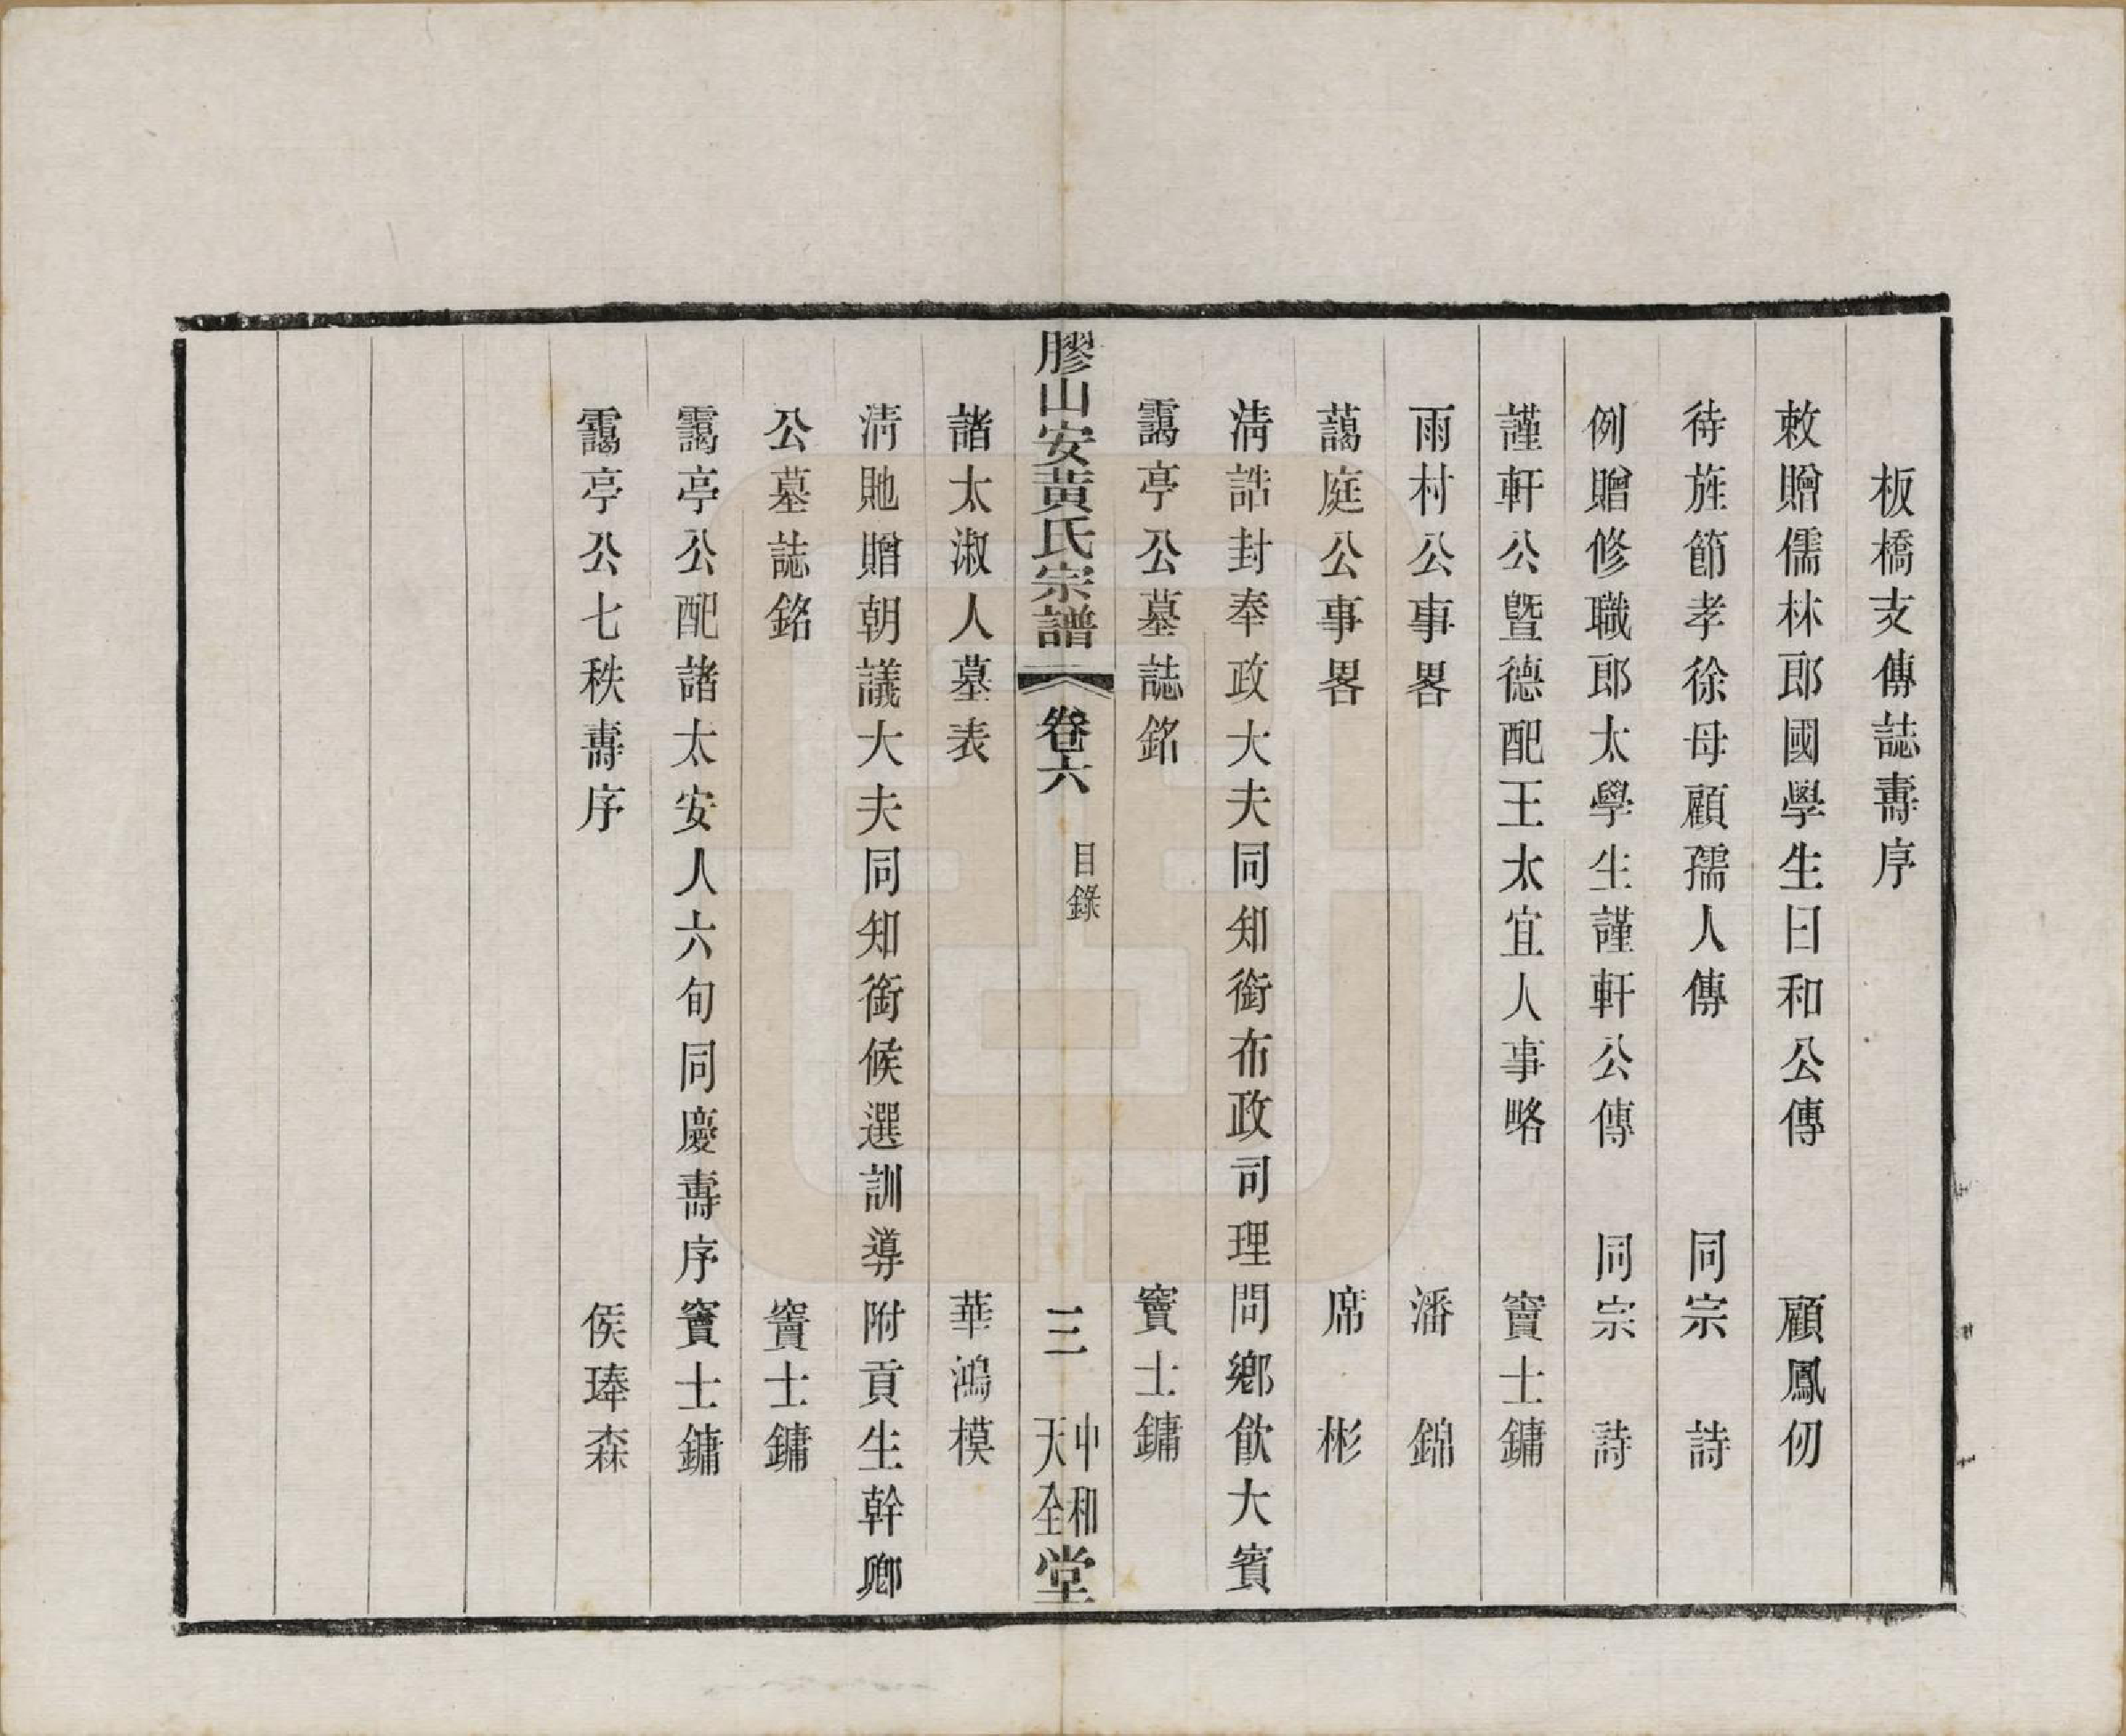 板橋支傳誌壽序
敕贈儒林郎國學生曰和公傳　顧鳳仞
待旌節孝徐母顧孺人傳　同宗　詩
例贈修職郎太學生謹軒公傳　同宗　詩
謹軒公曁德配王太宜人事略　竇士鏞
雨村公事畧　潘　錦
藹庭公事畧　席　彬
淸誥封奉政大夫同知銜布政司理問鄉飮大賓
靄亭公墓誌銘　竇士鏞
膠山安黃氏宗譜　卷六　目錄　三　中和　天全　堂
諸太淑人墓表　華鴻模
淸貤贈朝議大夫同知銜候選訓導附貢生幹卿
公墓誌銘　竇士鏞
靄亭公配諸太安人六旬同慶壽序　竇士鏞
靄亭公七秩壽序　侯琫森